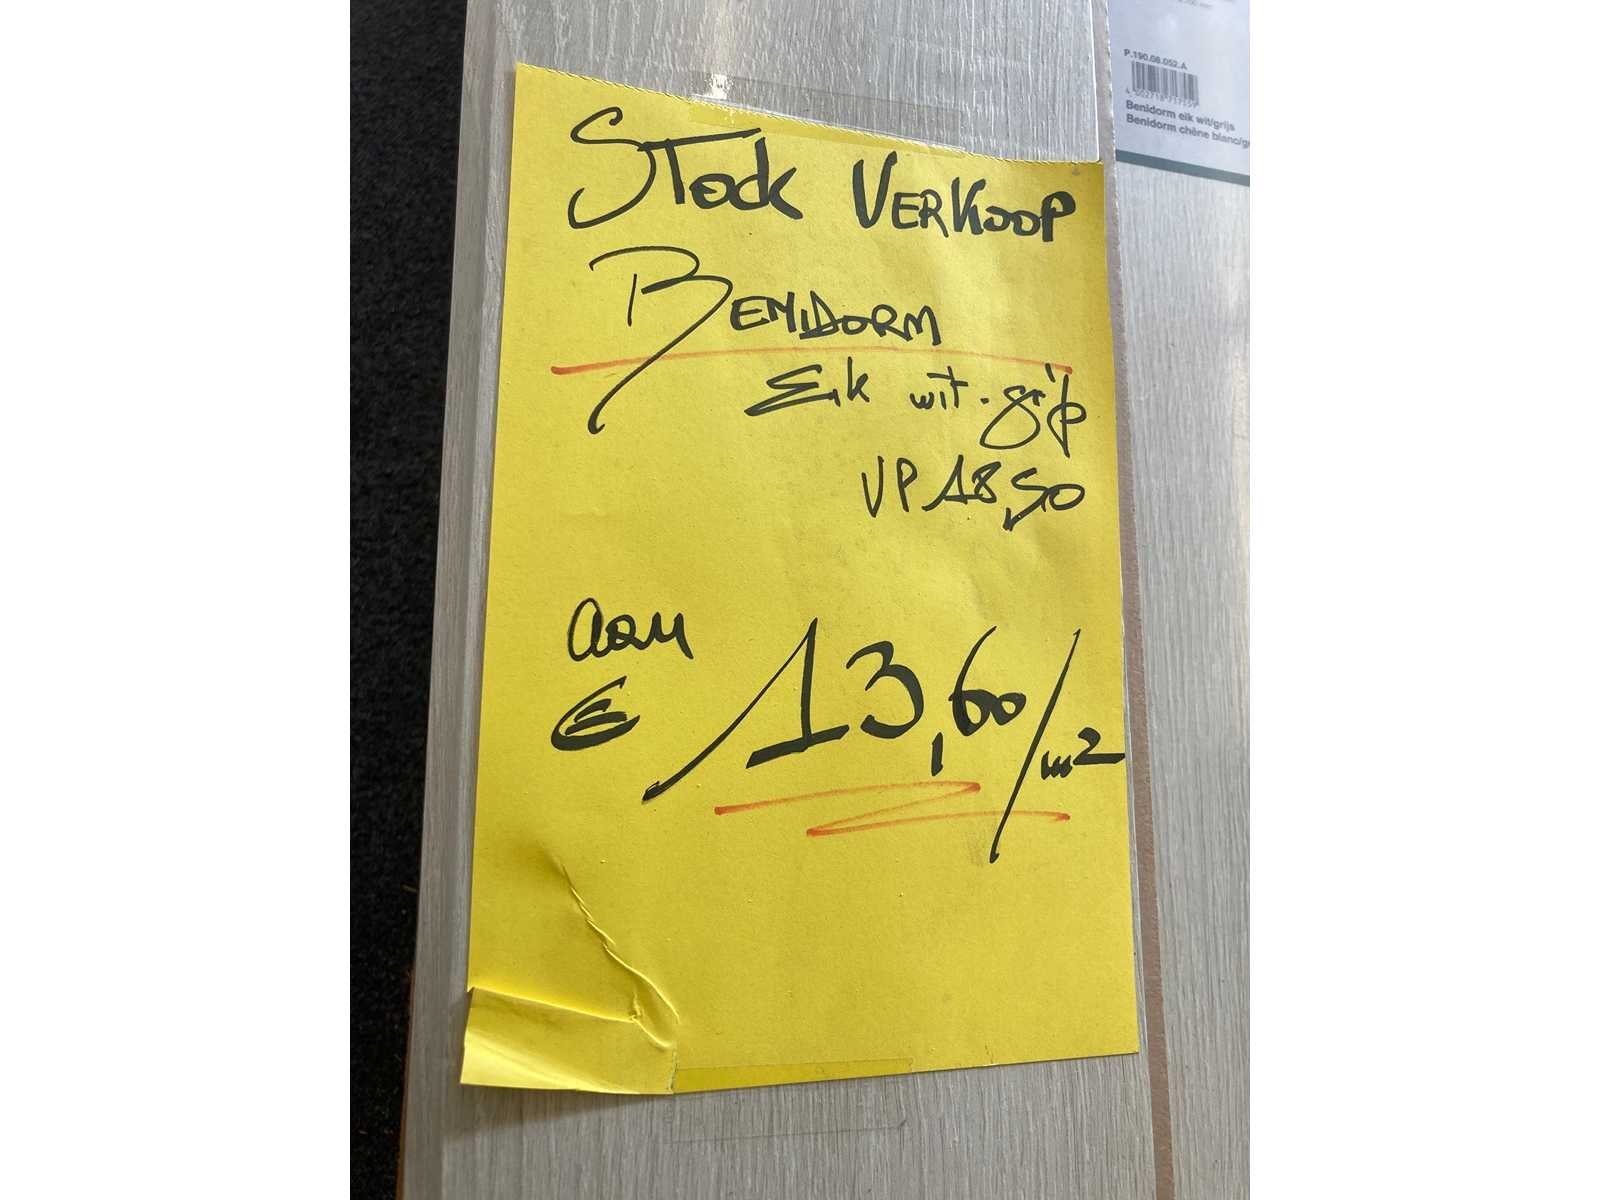 Stock VERKOOP
BENIDORM
Eik wit-grijs
VP 18,50
aan
€ 13,60/m2
P.190.08.052.A
Benidorm eik wit/grijs
Benidorm chêne blanc/g